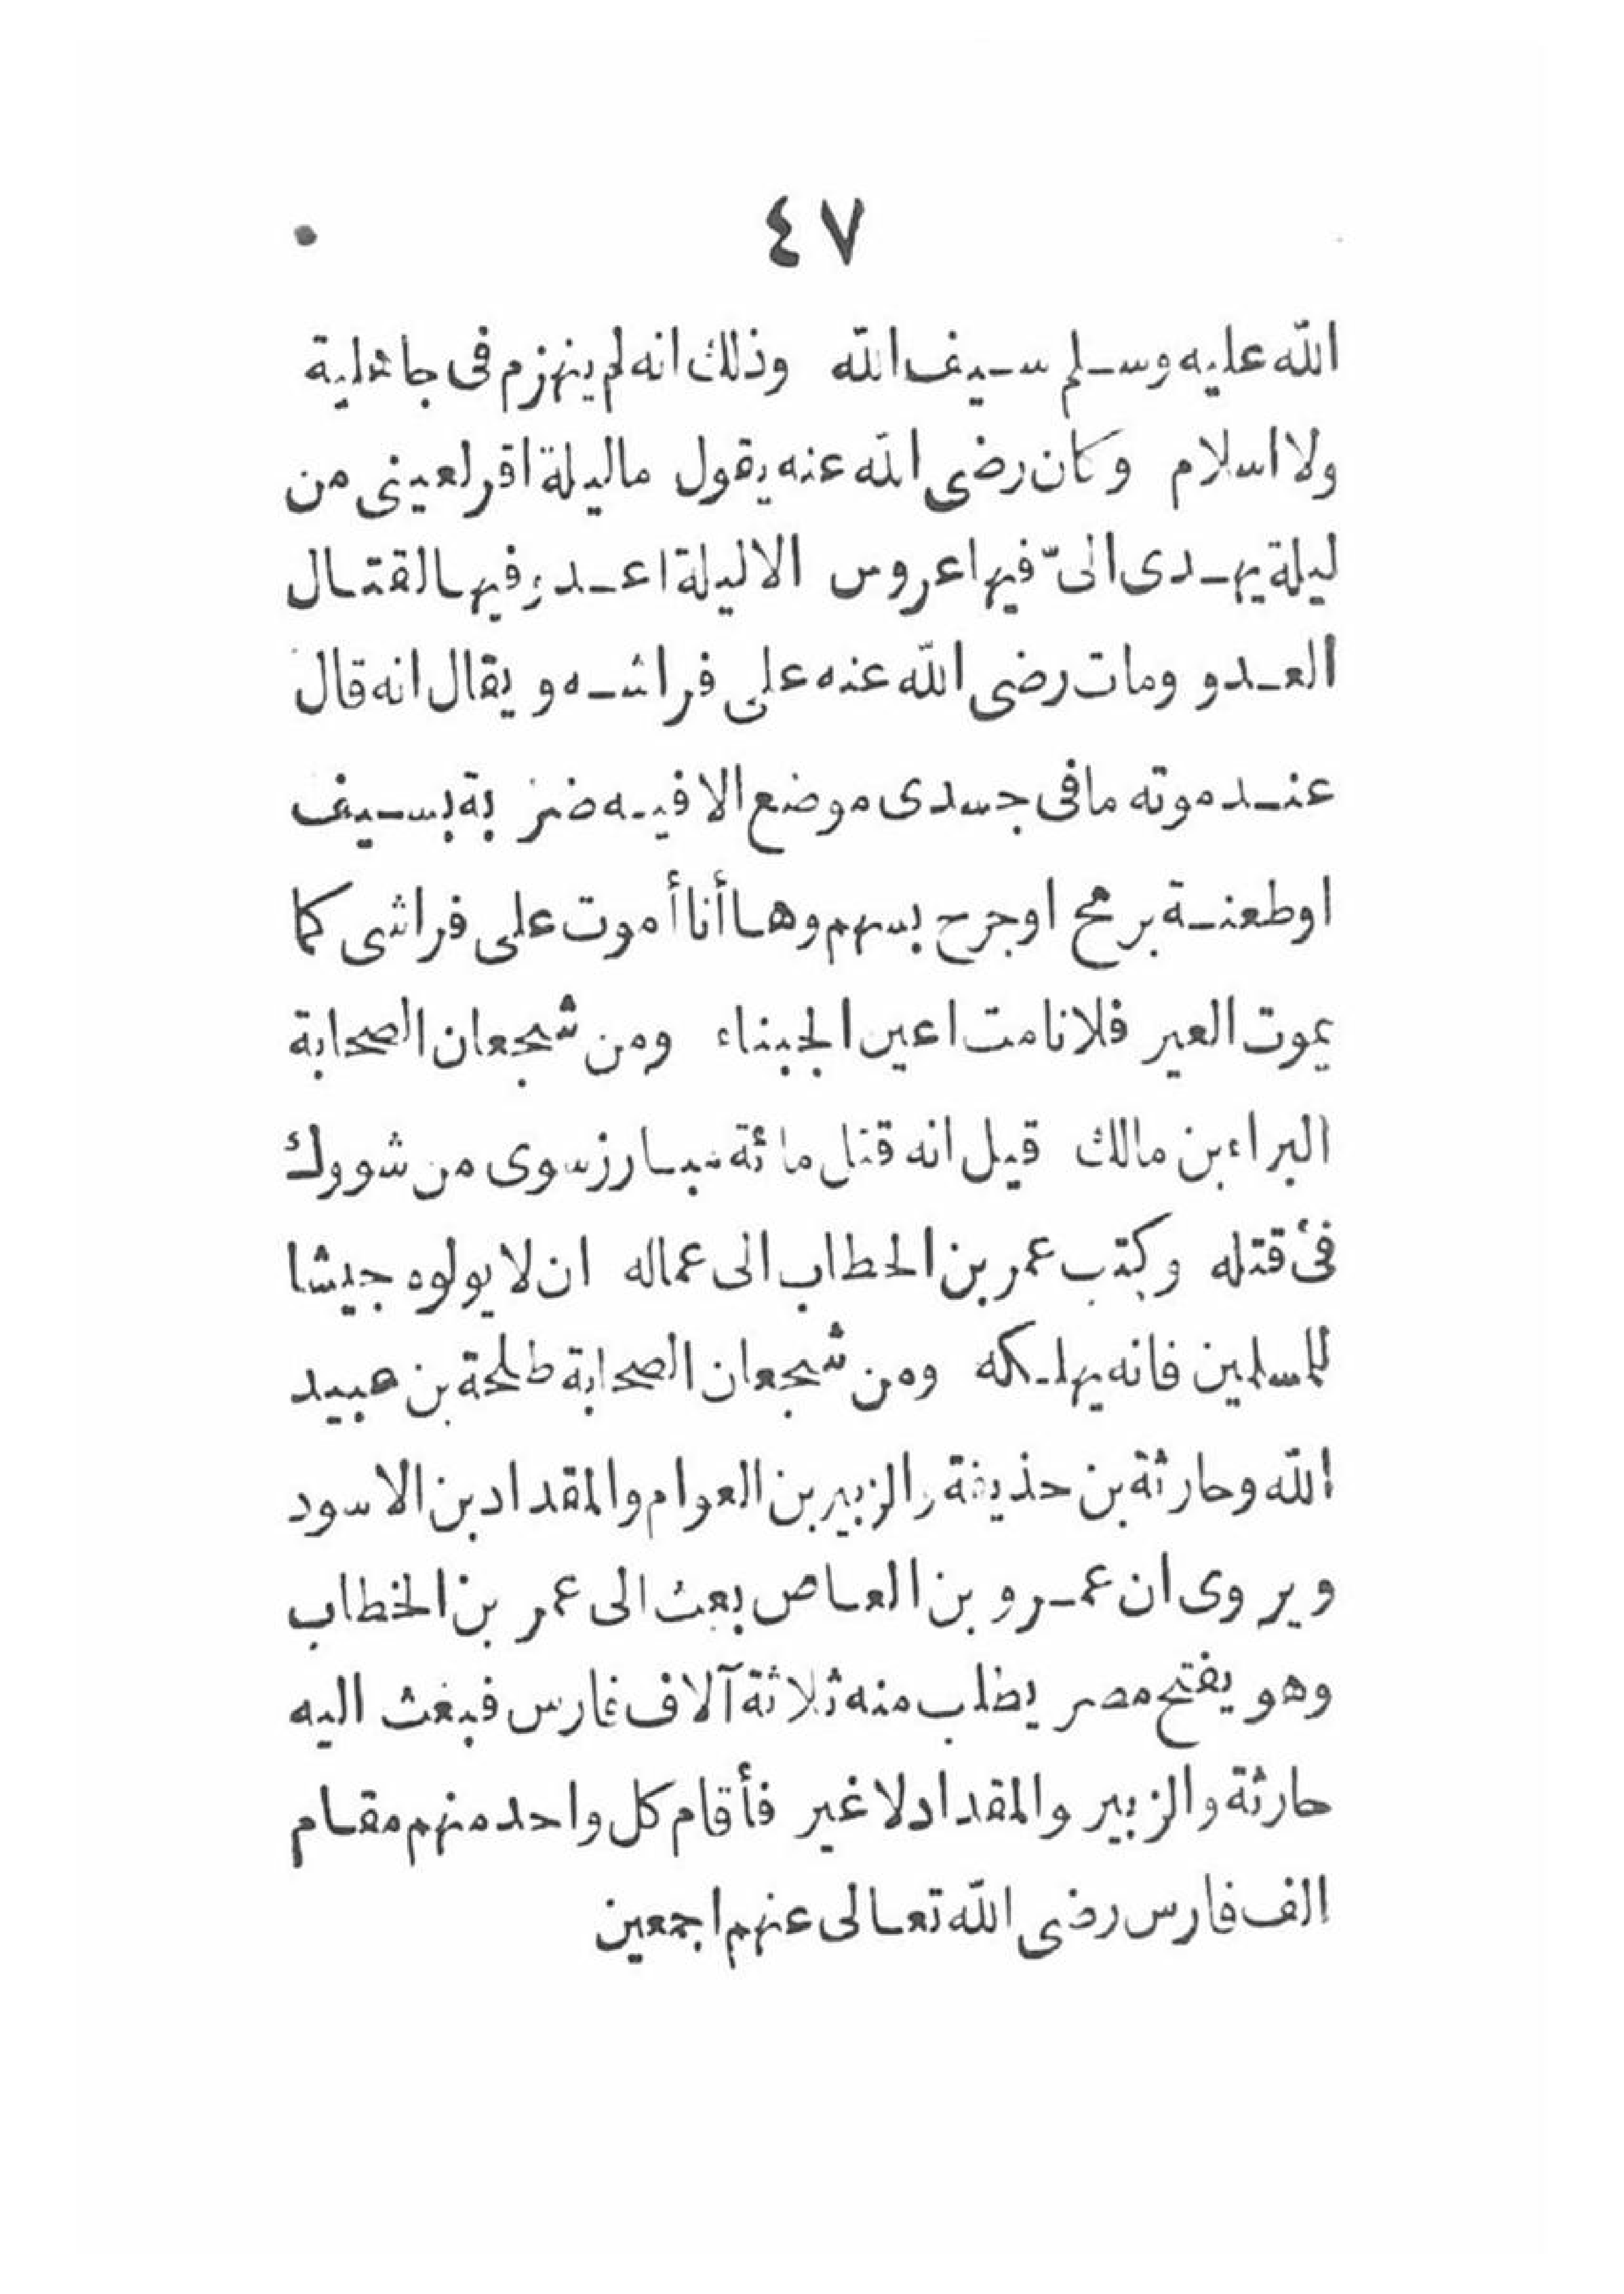 ٤٧
الله عليه وسلم سيف الله وذلك انه لم ينهزم فى جاهلية
ولا اسلام وكان رضى الله عنه يقول ما ليلة اقر لعينى من
ليلة يهدى الىّ فيها عروس الا ليلة اعد وفيها القتال
العدو ومات رضى الله عنه على فراشه ويقال انه قال
عند موته ما فى جسدى موضع الا فيه ضربة بسيف
او طعنة برمح او جرح بسهم وها أنا أموت على فراشى كما
يموت العير فلا نامت اعين الجبناء ومن شجعان الصحابة
البراء بن مالك قيل انه قتل مائة مبارز سوى من شورك
فى قتله وكتب عمر بن الخطاب الى عماله ان لا يولوه جيشا
للمسلمين فانه يهلكه ومن شجعان الصحابة طلحة بن عبيد
الله وحارثة بن حذيفة والزبير بن العوام والمقداد بن الاسود
ويروى ان عمرو بن العاص بعث الى عمر بن الخطاب
وهو يفتح مصر يطلب منه ثلاثة آلاف فارس فبعث اليه
حارثة والزبير والمقداد لا غير فأقام كل واحد منهم مقام
الف فارس رضى الله تعالى عنهم اجمعين